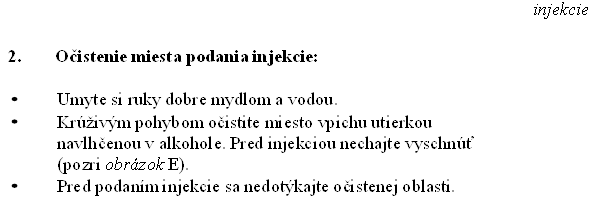 injekcie
2. Očistenie miesta podania injekcie:
• Umyte si ruky dobre mydlom a vodou.
• Krúživým pohybom očistite miesto vpichu utierkou
navlhčenou v alkohole. Pred injekciou nechajte vyschnúť
(pozri obrázok E).
• Pred podaním injekcie sa nedotýkajte očistenej oblasti.